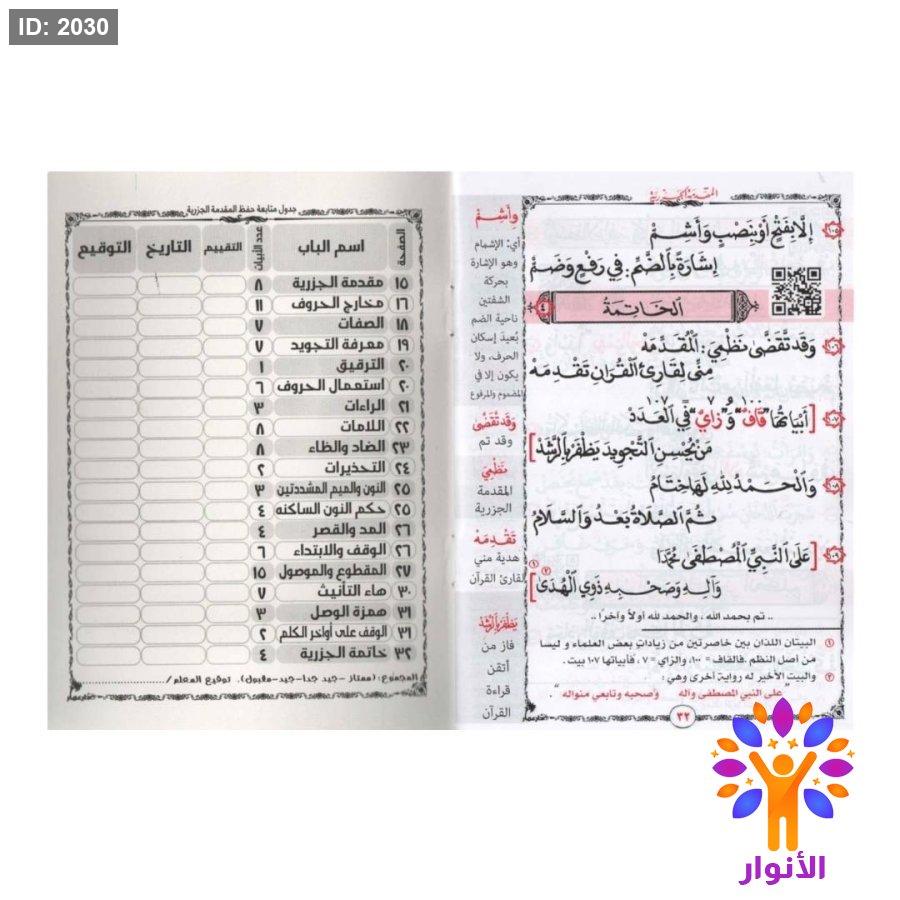 ID: 2030
المقدمة الجزرية
١٠٥ إِلَّا بِفَتْحٍ أَوْ بِنَصْبٍ وَأَشِمّْ
إِشَارَةً بِالضَّمِّ: فِي رَفْعٍ وَضَمّْ
اَلْخَاتِمَةُ ٤
١٠٦ وَقَد تَّقَضَّىٰ نَظْمِيَ: اَلْمُقَدِّمَهْ
مِنِّي لِقَارِئِ الْقُرَانِ تَقْدِمَهْ
١٠٠ ٧ ١٠٧
١٠٧ [أَبْيَاتُهَا "قَافٌ" وَ"زَايٌ" فِي الْعَدَدْ
مَنْ يُحْسِنِ التَّجْوِيدَ يَظْفَرْ بِالرَّشَدْ]
١٠٨ وَالْحَمْدُ لِلَّهِ لَهَا خِتَامُ
ثُمَّ الصَّلَاةُ بَعْدُ وَالسَّلَامُ
١٠٩ [عَلَى النَّبِيِّ الْمُصْطَفَىٰ مُحَمَّدَا
وَآلِهِ وَصَحْبِهِ ذَوِي الْهُدَىٰ] (١) (٢)
.. تم بحمد الله ، والحمد لله أولاً وآخرًا ..
١ البيتان اللذان بين خاصرتين من زيادات بعض العلماء و ليسا
من أصل النظم. فالقاف = ١٠٠، والزاي = ٧ ، فأبياتها ١٠٧ بيت.
٢ والبيت الأخير له رواية أخرى وهي :
"على النبي المصطفى وآله وصحبه وتابعي منواله ."
٣٢
وَأَشِمّْ
أي: الإشمام
وهو الإشارة
بحركة
الشفتين
ناحية الضم
بُعيدَ إسكان
الحرف، ولا
يكون إلا في
المضموم والمرفوع
وَقَد تَّقَضَّىٰ
وقد تم
نَظْمِيَ
المقدمة
الجزرية
تَقْدِمَهْ
هدية مني
لقارئ القرآن
يَظْفَرْ بِالرَّشَدْ
فاز من
أتقن
قراءة
القرآن
جدول متابعة حفظ المقدمة الجزرية
الصفحة اسم الباب عدد الأبيات التقييم التاريخ التوقيع
١٥ مقدمة الجزرية ٨
١٦ مخارج الحروف ١١
١٨ الصفات ٧
١٩ معرفة التجويد ٧
٢٠ الترقيق ١
٢٠ استعمال الحروف ٦
٢١ الراءات ٣
٢٢ اللامات ٨
٢٣ الضاد والظاء ٨
٢٤ التحذيرات ٢
٢٥ النون والميم المشددتين ٣
٢٥ حكم النون الساكنه ٤
٢٦ المد والقصر ٤
٢٦ الوقف والابتداء ٦
٢٧ المقطوع والموصول ١٥
٣٠ هاء التأنيث ٧
٣١ همزة الوصل ٣
٣١ الوقف على أواخر الكلم ٢
٣٢ خاتمة الجزرية ٤
المجموع: (ممتاز -جيد جدا-جيد-مقبول). توقيع المعلم/
الأنوار